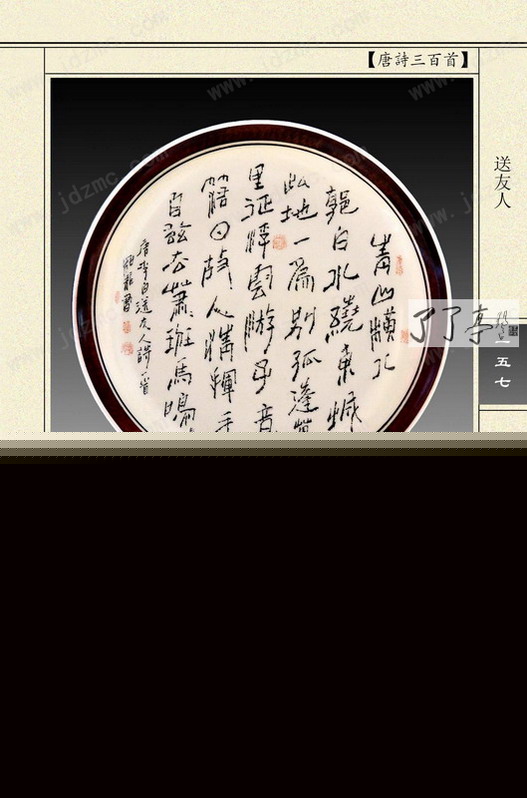 【唐詩三百首】
送友人
一五七
青山橫北
郭白水繞東城
此地一為別孤蓬萬
里征浮雲游子意
落日故人情揮手
自茲去蕭班馬鳴
唐李白送友人詩一首
了了亭
www.jdzmc.com